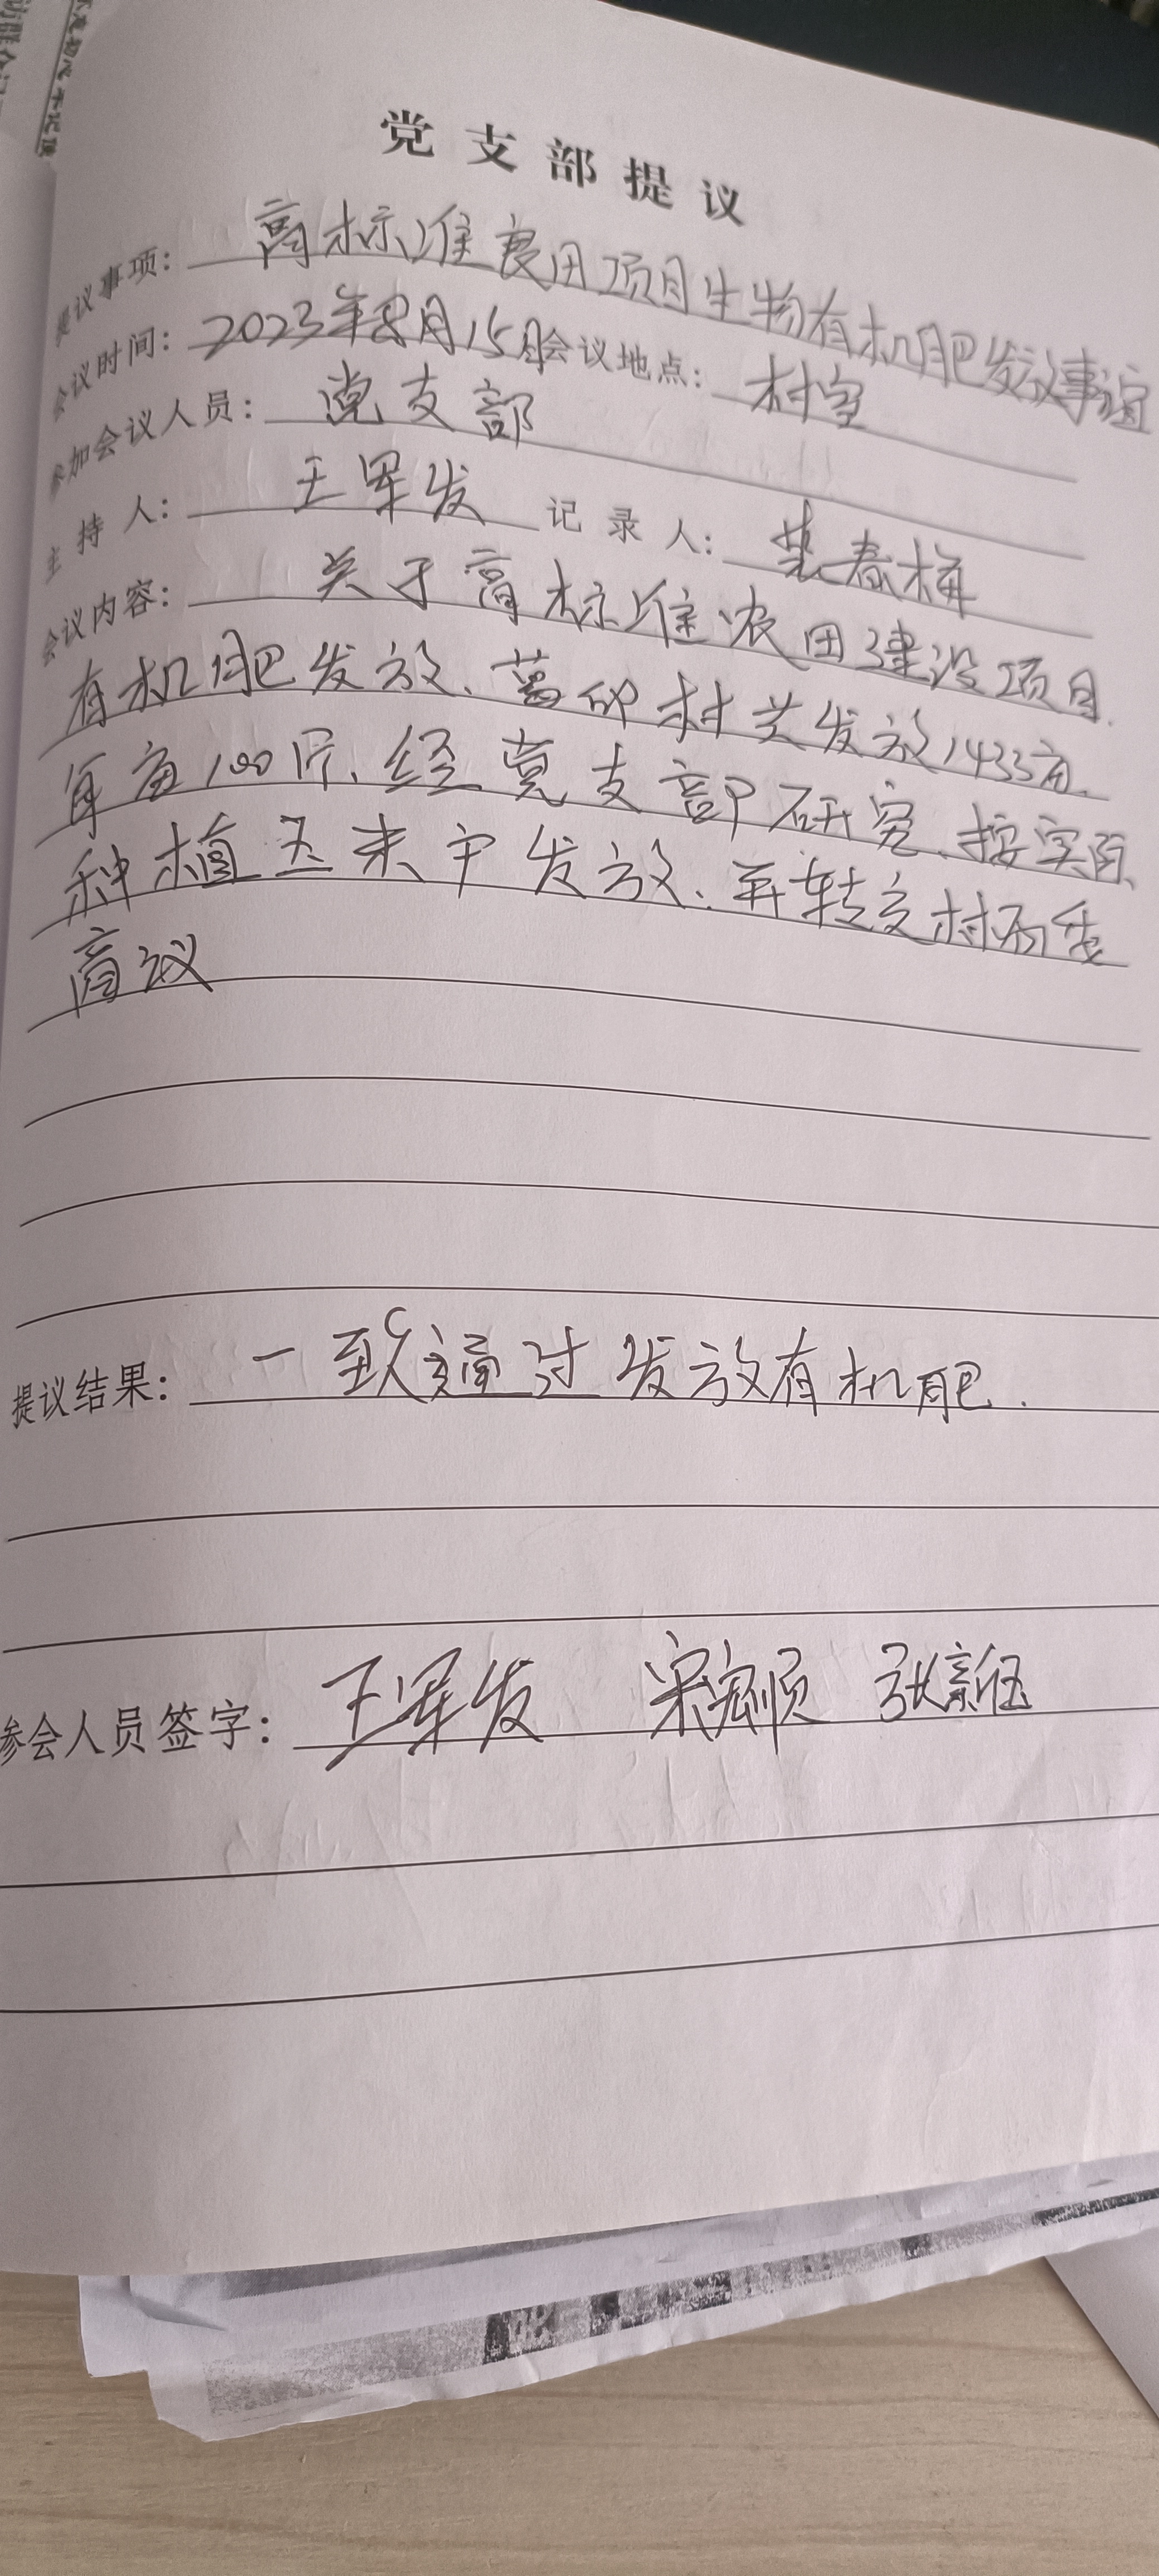 不忘初心 牢记使
党支部提议
提议事项: 高标准良田项目生物有机肥发放事宜
会议时间: 2023年8月15日会议地点: 村室
参加会议人员: 党支部
主持人: 王军发 记录人: 春梅
会议内容: 关于高标准农田建设项目.
有机肥发放、葛仰村共发放1433亩.
每亩100斤、经党支部研究、按实际
种植玉米户发放.再转交村两委
商议
提议结果: 一致通过发放有机肥.
参会人员签字: 王军发 宋宏顺 张新伍